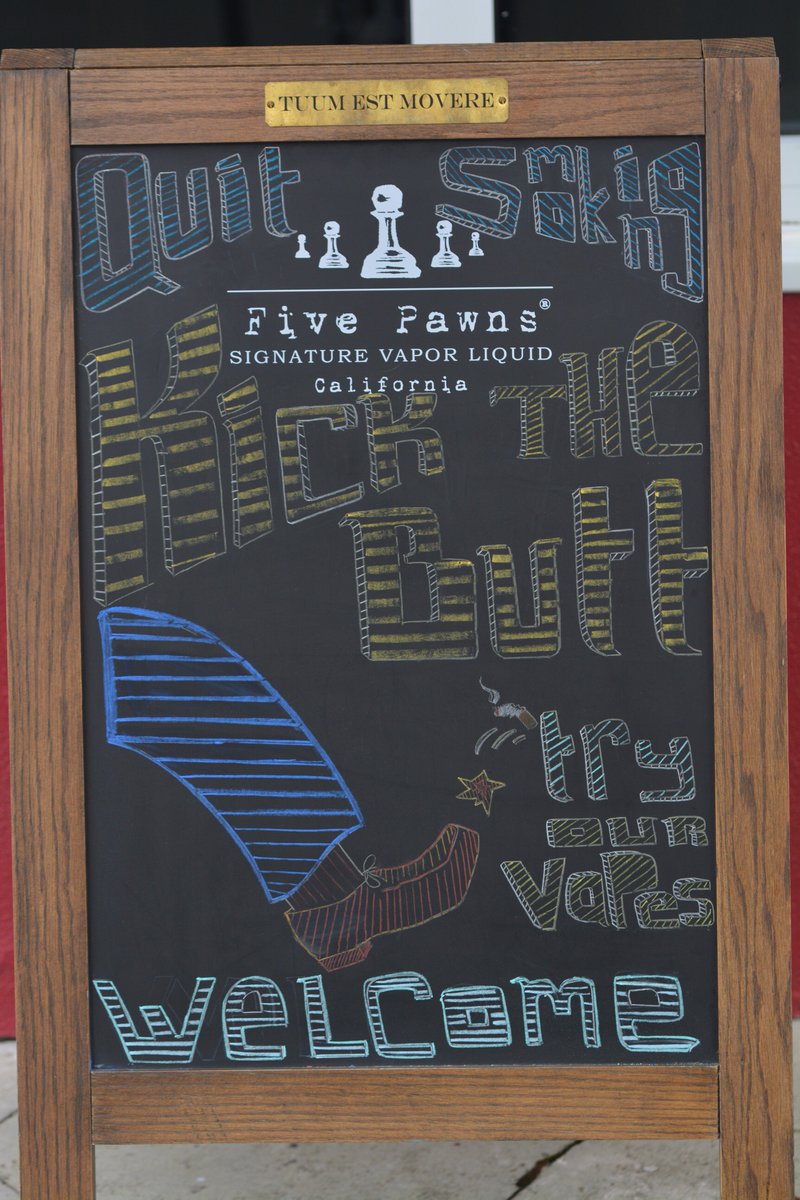 TUUM EST MOVERE
Quit Smoking
Five Pawns®
SIGNATURE VAPOR LIQUID
California
Kick THe
Butt
try
our
vapes
weLcome